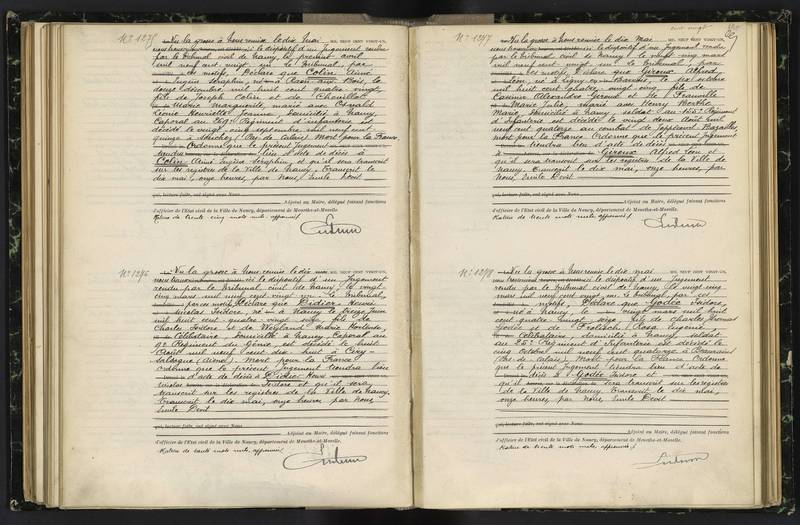 N° 1275 Vu la grosse à nous remise le dix mai MIL NEUF CENT VINGT-UN,
le dispositif d'un Jugement rendu
par le Tribunal civil de Nancy, le premier avril
mil neuf cent vingt un le Tribunal, par
ces motifs, Déclare que Colin Aimé
Eugène Séraphin, né à
douze décembre mil huit cent quatre vingt
fils de Joseph Colin et de
Marie Marguerite, marié avec
Léonie Henriette Jeanne, domicilié à Nancy
Caporal au Régiment d'infanterie est
décédé le vingt cinq septembre mil neuf cent
quinze à (Pas de Calais) Mort pour la France
Ordonne que le présent Jugement
tiendra lieu d'acte de décès à
Colin Aimé Eugène Séraphin, et qu'il sera transcrit
sur les registres de la Ville de Nancy. Transcrit le
dix mai, onze heures, par Nous, Emile Devit
qui, lecture faite, ont signé avec Nous
Adjoint au Maire, délégué faisant fonctions
d'officier de l'État civil de la Ville de Nancy, département de Meurthe-et-Moselle.
Rature de trente cinq mots nuls, approuvé
N° 1276 Vu la grosse à nous remise le dix mai MIL NEUF CENT VINGT-UN,
le dispositif d'un Jugement
rendu par le Tribunal civil de Nancy le vingt
cinq mars mil neuf cent vingt un le Tribunal,
par ces motifs Déclare que Didier Henri
Nicolas Isidore, né à Nancy le treize Juin
mil huit cent quatre vingt onze, fils de
Charles Isidore et de Weyland Marie Hortense,
Célibataire domicilié à Nancy Caporal au
9e Régiment du Génie, est décédé le huit
Août mil neuf cent dix huit à Cery-
Salsogne (Aisne). Mort pour la France
Ordonne que le présent Jugement tiendra lieu
d'acte de décès à Didier Henri
Nicolas Isidore et qu'il sera
transcrit sur les registres de la Ville de Nancy.
Transcrit le dix mai, onze heures par Nous
Emile Devit
qui, lecture faite, ont signé avec Nous
Adjoint au Maire, délégué faisant fonctions
d'officier de l'État civil de la Ville de Nancy, département de Meurthe-et-Moselle.
Rature de trente mots nuls, approuvé
N° 1277 Vu la grosse à nous remise le dix mai MIL NEUF CENT VINGT-UN,
le dispositif d'un Jugement rendu
par le Tribunal civil de Nancy, le vingt cinq mars
mil neuf cent vingt un le Tribunal, par
ces motifs, Déclare que Giroux Alfred
Léon, né à Ligny en Barrois, le six octobre
mil huit cent quatre vingt cinq fils de
Casimir Alexandre Giroux et de
Marie Julie, marié avec Henry Berthe
Marie, domicilié à Nancy, soldat au Régiment
d'Infanterie est décédé le vingt deux Août mil
neuf cent quatorze au combat de
mort pour la France Ordonne que le présent jugement
tiendra lieu d'acte de décès
à Giroux Alfred Léon et
qu'il sera transcrit sur les registres de la Ville de
Nancy. Transcrit le dix mai, onze heures, par
Nous, Emile Devit
qui, lecture faite, ont signé avec Nous
Adjoint au Maire, délégué faisant fonctions
d'officier de l'État civil de la Ville de Nancy, département de Meurthe-et-Moselle.
Rature de trente mots nuls, approuvé
N° 1278 Vu la grosse à nous remise le dix mai MIL NEUF CENT VINGT-UN,
le dispositif d'un Jugement
rendu par le Tribunal civil de Nancy, le vingt cinq
mars mil neuf cent vingt un le Tribunal, par ces
motifs Déclare que Godée Isidore,
né à Nancy, le vingt mars mil huit
cent quatre vingt onze, fils de Charles Thomas
Godée et de Frelisch Rosa Eugénie,
Célibataire, domicilié à Nancy, soldat
au Régiment d'Infanterie est décédé le
cinq octobre mil neuf cent quatorze à
(Pas de Calais). Mort pour la France Ordonne
que le présent Jugement tiendra lieu d'acte de
décès à Godée Isidore et
qu'il sera transcrit sur les registres
de la Ville de Nancy. Transcrit le dix mai,
onze heures par Nous, Emile Devit
qui, lecture faite, ont signé avec Nous
Adjoint au Maire, délégué faisant fonctions
d'officier de l'État civil de la Ville de Nancy, département de Meurthe-et-Moselle.
Rature de trente mots nuls, approuvé